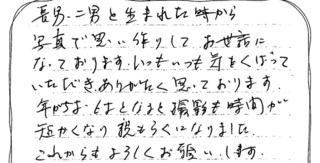 長男、二男と生まれた時から
写真で思い作りして お世話に
なっております。いつもいつも気をくばって
いただき、ありがたく思っております。
年があ とはとなると撮影も時間が
短かくなり 親もらくになりました。
これからもよろしくお願いします。